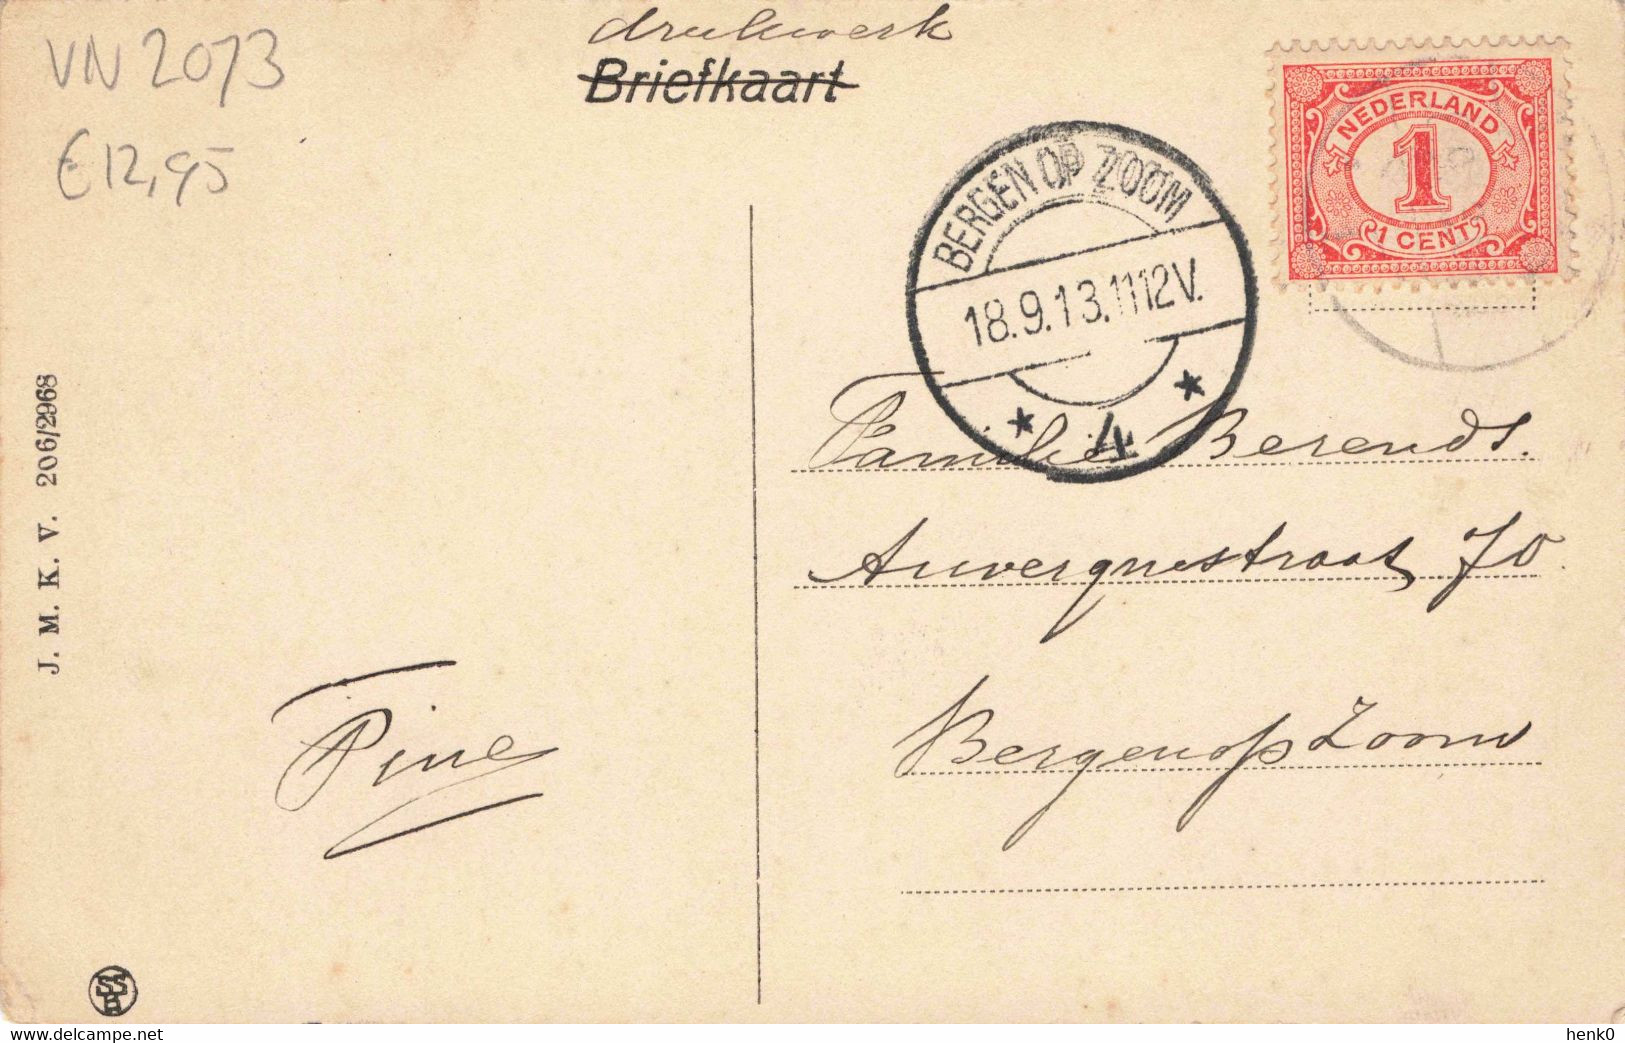 VN 2073
€ 12,95
drukwerk
Briefkaart
NEDERLAND
1
1 CENT
BERGEN OP ZOOM
18.9.13.1112V.
4
Familie Berends.
Auvergnestraat 70.
Bergen op Zoom
Pine
J. M. K. V. 206/2968
www.delcampe.net
henk0